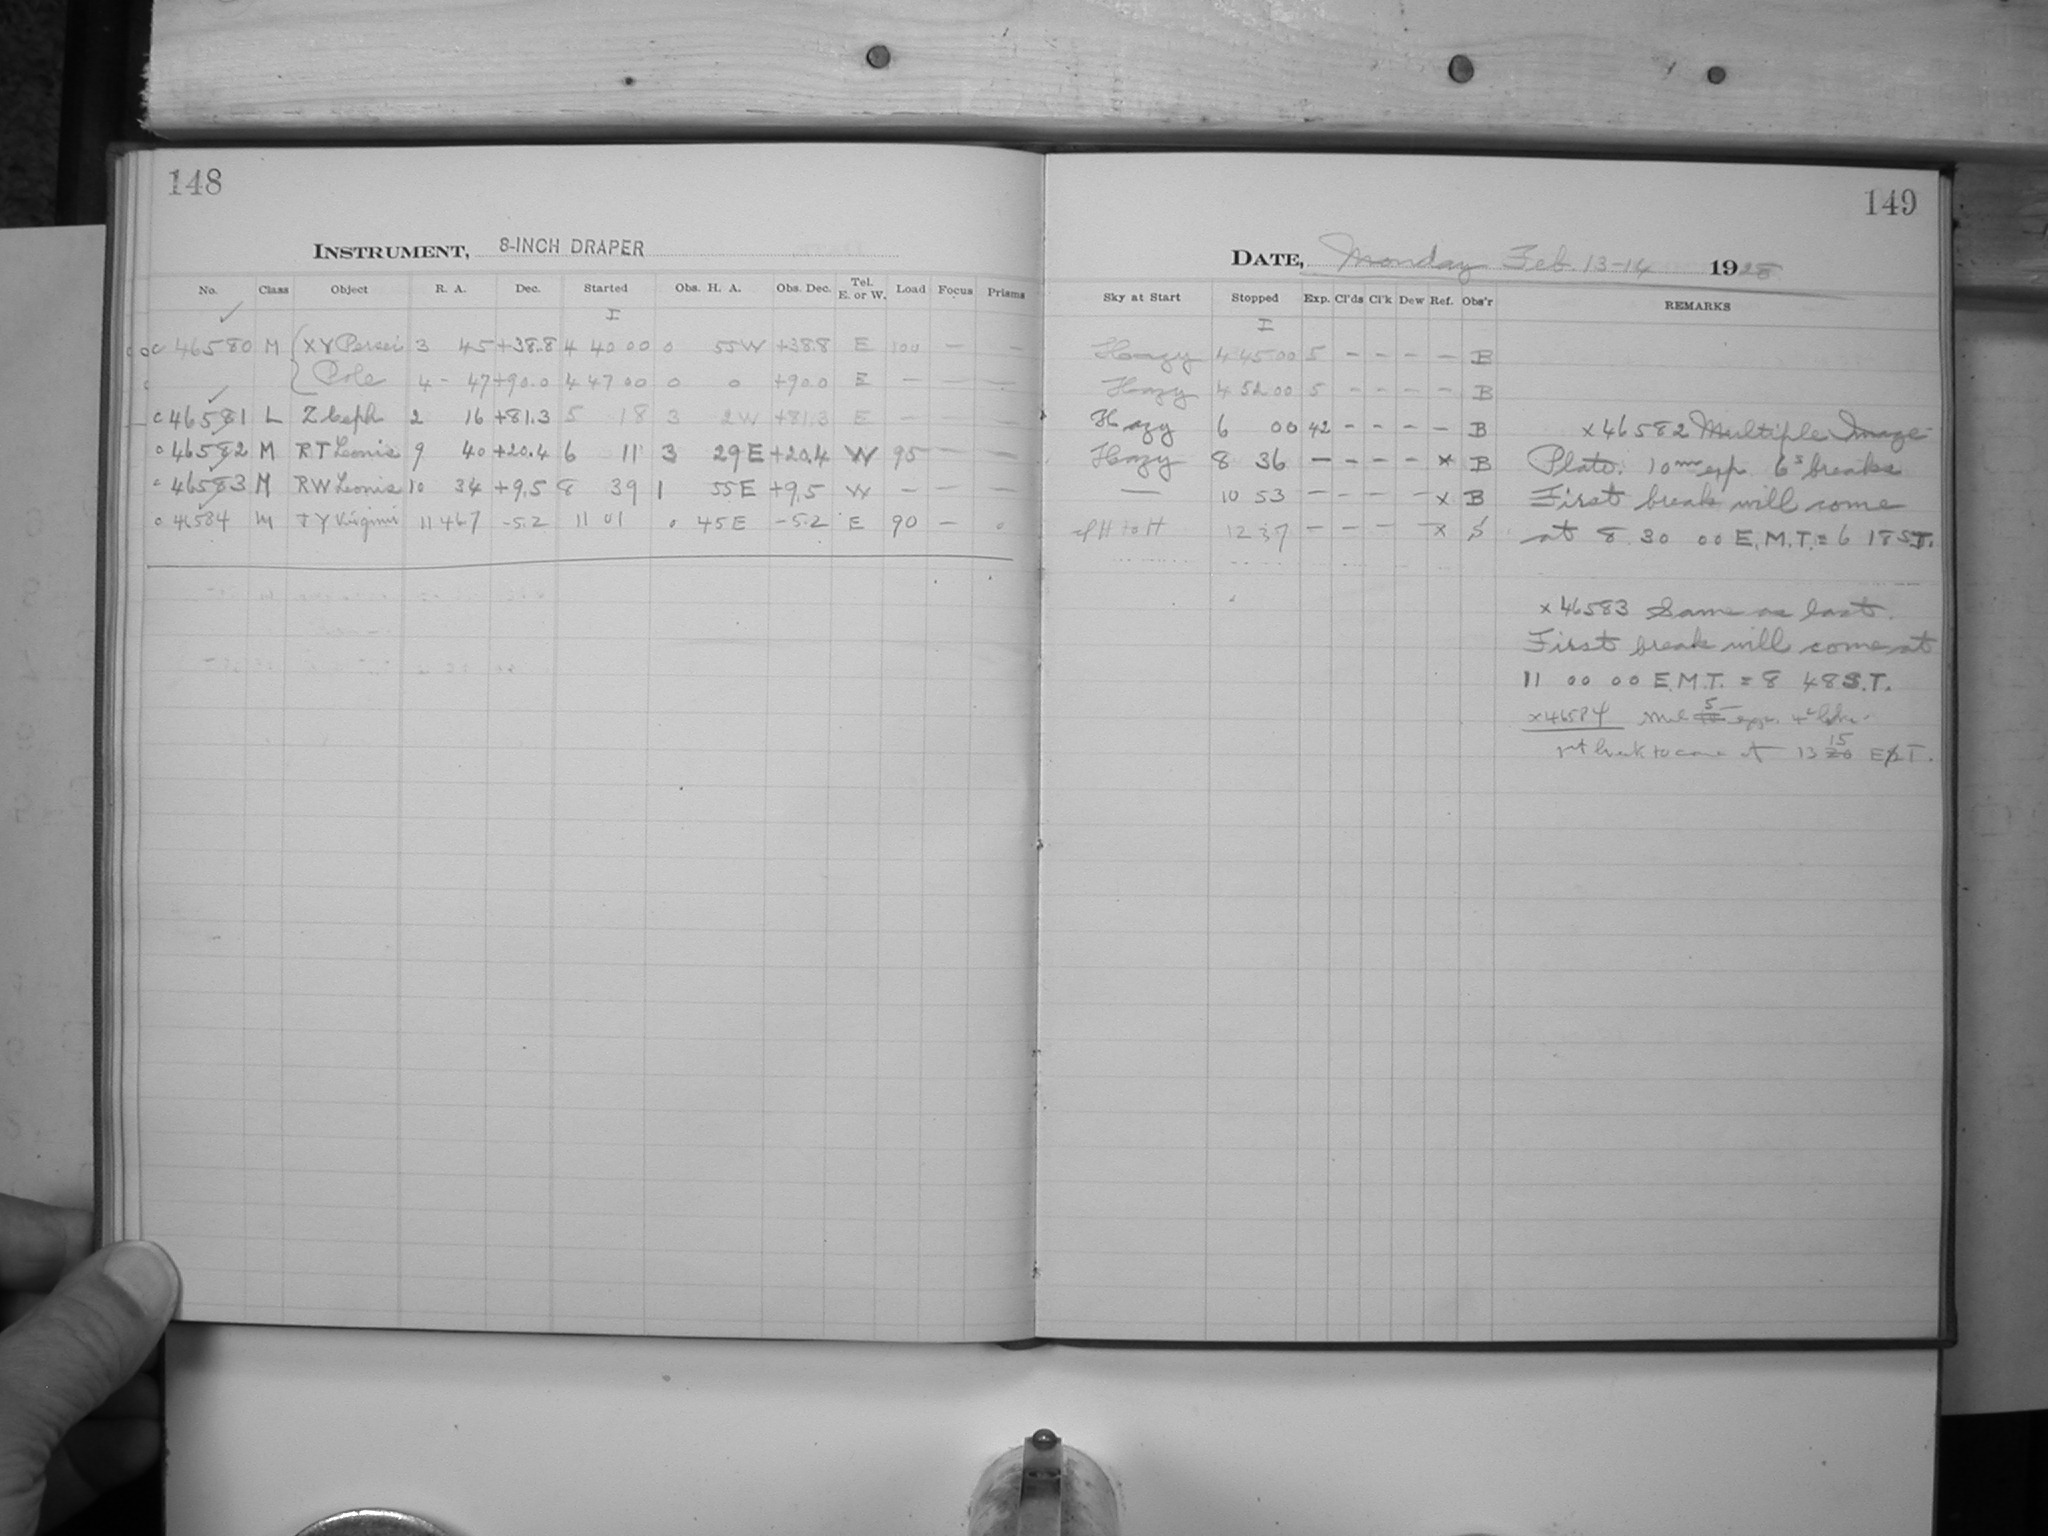 148
INSTRUMENT, 8-INCH DRAPER
No. Class Object R. A. Dec. Started Obs. H. A. Obs. Dec. Tel. E. or W. Load Focus Prisms
I
46580 M XY Persei 3 45 +38.8 4 40 00 0 55 W +38.8 E 100 — —
Pole 4 - 47 +90.0 4 47 00 0 0 +90.0 E — — —
c 46581 L Z Ceph 2 16 +81.3 5 18 3 2 W +81.3 E — — —
o 46582 M RT Leonis 9 40 +20.4 6 11 3 29 E +20.4 W 95 — —
c 46583 M RW Leonis 10 34 +9.5 8 39 1 55 E +9.5 W — — —
o 46584 M TY Virginis 11 467 -5.2 11 01 0 45 E -5.2 E 90 —
149
DATE, Monday Feb. 13-14 1928
Sky at Start Stopped Exp. Cl'ds Cl'k Dew Ref. Obs'r REMARKS
I
Hazy 4 45 00 5 - - - - B
Hazy 4 52 00 5 - - - - B
Hazy 6 00 42 - - - - B x46582 Multiple Image
Hazy 8 36 - - - - x B Plate. 10 exp. 6s breaks
— 10 53 - - - - x B First break will come
H to H 12 37 - - - - x S at 8 30 00 E.M.T. = 6 18 S.T.
x 46583 Same as last.
First break will come at
11 00 00 E.M.T. = 8 48 S.T.
x46584 5
1st break to come at 13 15 20